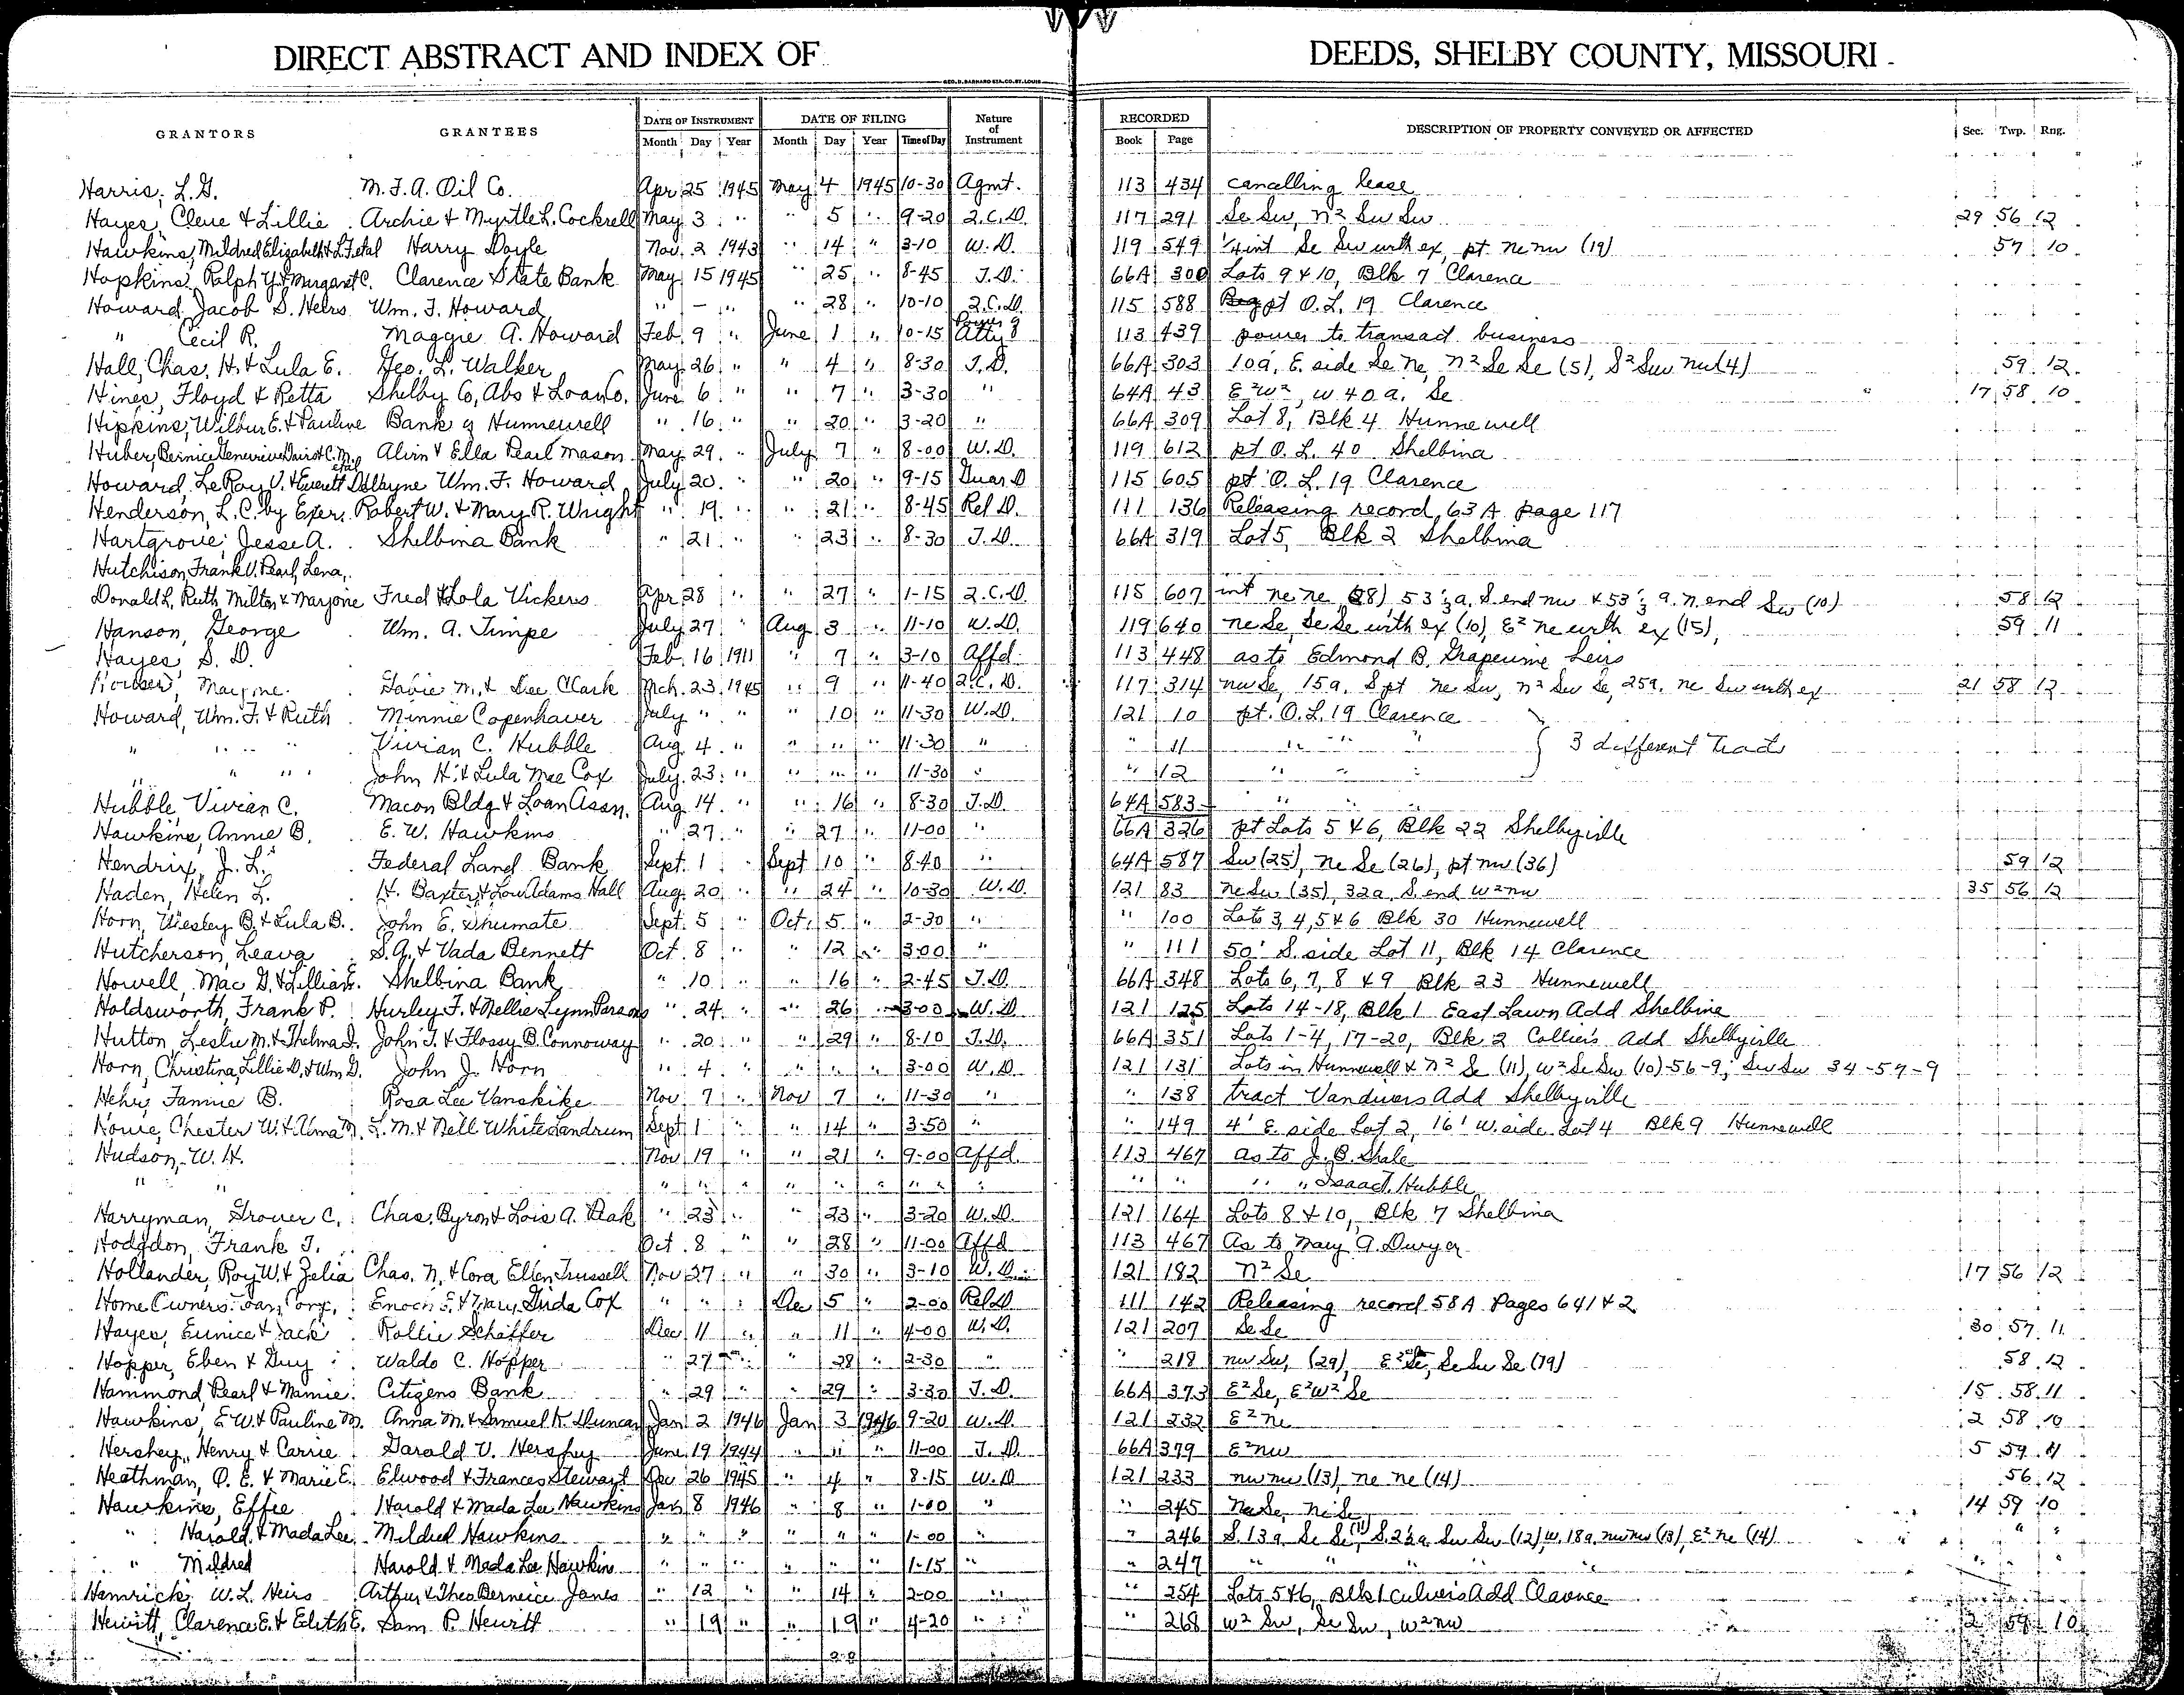 DIRECT ABSTRACT AND INDEX OF DEEDS, SHELBY COUNTY, MISSOURI
GEO. D. BARNARD STA. CO. ST. LOUIS
GRANTORS GRANTEES DATE OF INSTRUMENT DATE OF FILING Nature of Instrument RECORDED DESCRIPTION OF PROPERTY CONVEYED OR AFFECTED Sec. Twp. Rng.
Month Day Year Month Day Year Time of Day Book Page
Harris, L.G. M.F.A. Oil Co. Apr 25 1945 May 4 1945 10-30 Agmt. 113 434 cancelling lease
Hayes, Cleve & Lillie Archie & Myrtle L. Cockrell May 3 " " 5 " 9-20 Q.C.D. 117 291 Se Sw, N2 Sw Sw 29 56 12
Hawkins, Mildred Elizabeth & L.F. etal Harry Doyle Nov. 2 1943 " 14 " 3-10 W.D. 119 549 1/4 int Se Sw with ex, pt. Ne Nw (19) 57 10
Hopkins, Ralph Y. & Margaret C. Clarence State Bank May 15 1945 " 25 " 8-45 T.D. 66A 300 Lots 9 & 10, Blk 7 Clarence
Howard, Jacob S. Heirs Wm. F. Howard " - " " 28 " 10-10 Q.C.D. 115 588 pt O.L. 19 Clarence
" Cecil R. Maggie A. Howard Feb. 9 " June 1 " 10-15 Power of Atty 113 439 power to transact business
Hall, Chas. H. & Lula E. Geo. L. Walker May 26 " " 4 " 8-30 T.D. 66A 303 10a, E. side Se Ne, N2 Se Se (5), S2 Sw Nw (4) 59 12
Hines, Floyd & Retta Shelby Co. Abs & Loan Co. June 6 " " 7 " 3-30 " 64A 43 E2 W2, W 40 a. Se 17 58 10
Hipkins, Wilbur E. & Pauline Bank of Hunnewell " 16 " " 20 " 3-20 " 66A 309 Lot 8, Blk 4 Hunnewell
Huber, Bernice Genevieve Davis & C.M. etal Alvin & Ella Pearl Mason May 29 " July 7 " 8-00 W.D. 119 612 pt O.L. 40 Shelbina
Howard, LeRoy V. & Everett Wm. F. Howard July 20 " " 20 " 9-15 Guar D 115 605 pt O.L. 19 Clarence
Henderson, L.C. by Exer. Robert W. & Mary R. Wright " 19 " " 21 " 8-45 Rel D. 111 136 Releasing record 63A page 117
Hartgrove, Jesse A. Shelbina Bank " 21 " " 23 " 8-30 T.D. 66A 319 Lot 5, Blk 2 Shelbina
Hutchison, Frank V. Pearl, Lena,
Donald L. Ruth, Milton & Marjorie Fred & Lola Vickers Apr 28 " " 27 " 1-15 Q.C.D. 115 607 int Ne Ne (28) 53 1/3 a. S. end Nw & 53 1/3 a. N. end Sw (10) 58 12
Hanson, George Wm. A. Timpe July 27 " Aug 3 " 11-10 W.D. 119 640 Ne Se, Se Se with ex (10), E2 Ne with ex (15), 59 11
Hayes, S.D. Feb. 16 1911 " 7 " 3-10 Affd. 113 448 as to Edmond B. Grapevine heirs
Houser, Maxine Gavie M. & Dee Clark Mch. 23 1945 " 9 " 11-40 Q.C.D. 117 314 Nw Se, 15a. S pt Ne Sw, N2 Sw Se, 25a. Ne Sw with ex 21 58 12
Howard, Wm. F. & Ruth Minnie Copenhaver July " " " 10 " 11-30 W.D. 121 10 pt. O.L. 19 Clarence
" " " " Vivian C. Hubble Aug. 4 " " " " 11-30 " " 11 " " " } 3 different tracts
" " " " John H. & Lula Mae Cox July 23 " " " " 11-30 " " 12 " " "
Hubble, Vivian C. Macon Bldg & Loan Assn. Aug 14 " " 16 " 8-30 T.D. 64A 583 " " "
Hawkins, Annie B. E.W. Hawkins " 27 " " 27 " 11-00 " 66A 326 pt Lots 5 & 6, Blk 22 Shelbyville
Hendrix, J.L. Federal Land Bank Sept. 1 " Sept 10 " 8-40 " 64A 587 Sw (25), Ne Se (26), pt Nw (36) 59 12
Haden, Helen L. H. Baxter & Lou Adams Hall Aug 20 " " 24 " 10-30 W.D. 121 83 Ne Sw (35), 32a. S. end W2 Nw 35 56 12
Horn, Wesley B. & Lula B. John E. Shumate Sept. 5 " Oct. 5 " 2-30 " " 100 Lots 3, 4, 5 & 6 Blk 30 Hunnewell
Hutcherson, Leava S.A. & Vada Bennett Oct. 8 " " 12 " 3-00 " " 111 50' S. side Lot 11, Blk 14 Clarence
Howell, Mac G. & Lillian E. Shelbina Bank " 10 " " 16 " 2-45 T.D. 66A 348 Lots 6, 7, 8 & 9 Blk 23 Hunnewell
Holdsworth, Frank P. Hurley F. & Nellie Lynn Parsons " 24 " " 26 " 3-00 W.D 121 125 Lots 14-18, Blk 1 East Lawn Add Shelbina
Hutton, Leslie M. & Thelma I. John T. & Flossy B. Connoway " 20 " " 29 " 8-10 T.D. 66A 351 Lots 1-4, 17-20, Blk 2 Collier's Add Shelbyville
Horn, Christina, Lillie D. & Wm D. John J. Horn " 4 " " " " 3-00 W.D 121 131 Lots in Hunnewell & N2 Se (11), W2 Se Sw (10)-56-9, Sw Sw 34-57-9
Hehr, Fannie B. Rosa Lee Vanskike Nov 7 " Nov 7 " 11-30 " " 138 tract Vandivers Add Shelbyville
Howe, Chester W. & Alma M. L.M. & Nell White Landrum Sept. 1 " " 14 " 3-50 " " 149 4' E. side Lot 2, 16' W. side Lot 4 Blk 9 Hunnewell
Hudson, W.H. Nov 19 " " 21 " 9-00 Affd. 113 467 as to J.B. Shale
" " " " " " " " " " " " " " Isaac T. Hubble
Harryman, Grover C. Chas. Byron & Lois A. Peak " 23 " " 23 " 3-20 W.D. 121 164 Lots 8 & 10, Blk 7 Shelbina
Hodgdon, Frank T. Oct. 8 " " 28 " 11-00 Affd 113 467 As to Mary A. Dwyer
Hollander, Roy W. & Zelia Chas. N. & Cora Ellen Trussell Nov 27 " " 30 " 3-10 W.D. 121 182 N2 Se 17 56 12
Home Owners Loan Corp. Enoch E. & Mary Guida Cox " " " Dec 5 " 2-00 Rel D 111 142 Releasing record 58A Pages 641 & 2
Hayes, Eunice & Jack Rollie Schaffer Dec 11 " " 11 " 4-00 W.D. 121 207 Se Se 30 57 11
Hopper, Eben & Guy Waldo C. Hopper " 27 " " 28 " 2-30 " " 218 Nw Sw, (29), E2 Se, Se Sw Se (19) 58 12
Hammond, Pearl & Mamie Citizens Bank " 29 " " 29 " 3-30 T.D. 66A 373 E2 Se, E2 W2 Se 15 58 11
Hawkins, E.W. & Pauline M. Anna M. & Samuel K. Duncan Jan 2 1946 Jan 3 1946 9-20 W.D. 121 232 E2 Ne 2 58 10
Hershey, Henry & Carrie Garald V. Hershey June 19 1944 " " " 11-00 T.D. 66A 379 E2 Nw 5 59 11
Heathman, O.E. & Marie E. Elwood & Frances Stewart Dec 26 1945 " 4 " 8-15 W.D 121 233 Nw Nw (13), Ne Ne (14) 56 12
Hawkins, Effie Harold & Mada Lee Hawkins Jan 8 1946 " 8 " 1-00 " " 245 Se, Ne Se 14 59 10
" Harold & Mada Lee Mildred Hawkins " " " " " " 1-00 " " 246 S. 13a. Se Se (11) S. 2 1/2 a Sw Sw (12), W. 18a. Nw Nw (13), E2 Ne (14) " "
" Mildred Harold & Mada Lee Hawkins " " " " " " 1-15 " " 247 " " " " " "
Hamrick, W.L. Heirs Arthur & Theo Berneice Janes " 12 " " 14 " 2-00 " " 254 Lots 5 & 6, Blk 1 Culvers Add Clarence
Hewitt, Clarence E. & Edith E. Sam P. Hewitt " 19 " " 19 " 4-20 " " 268 W2 Sw, Se Sw, W2 Nw 2 59 10
28